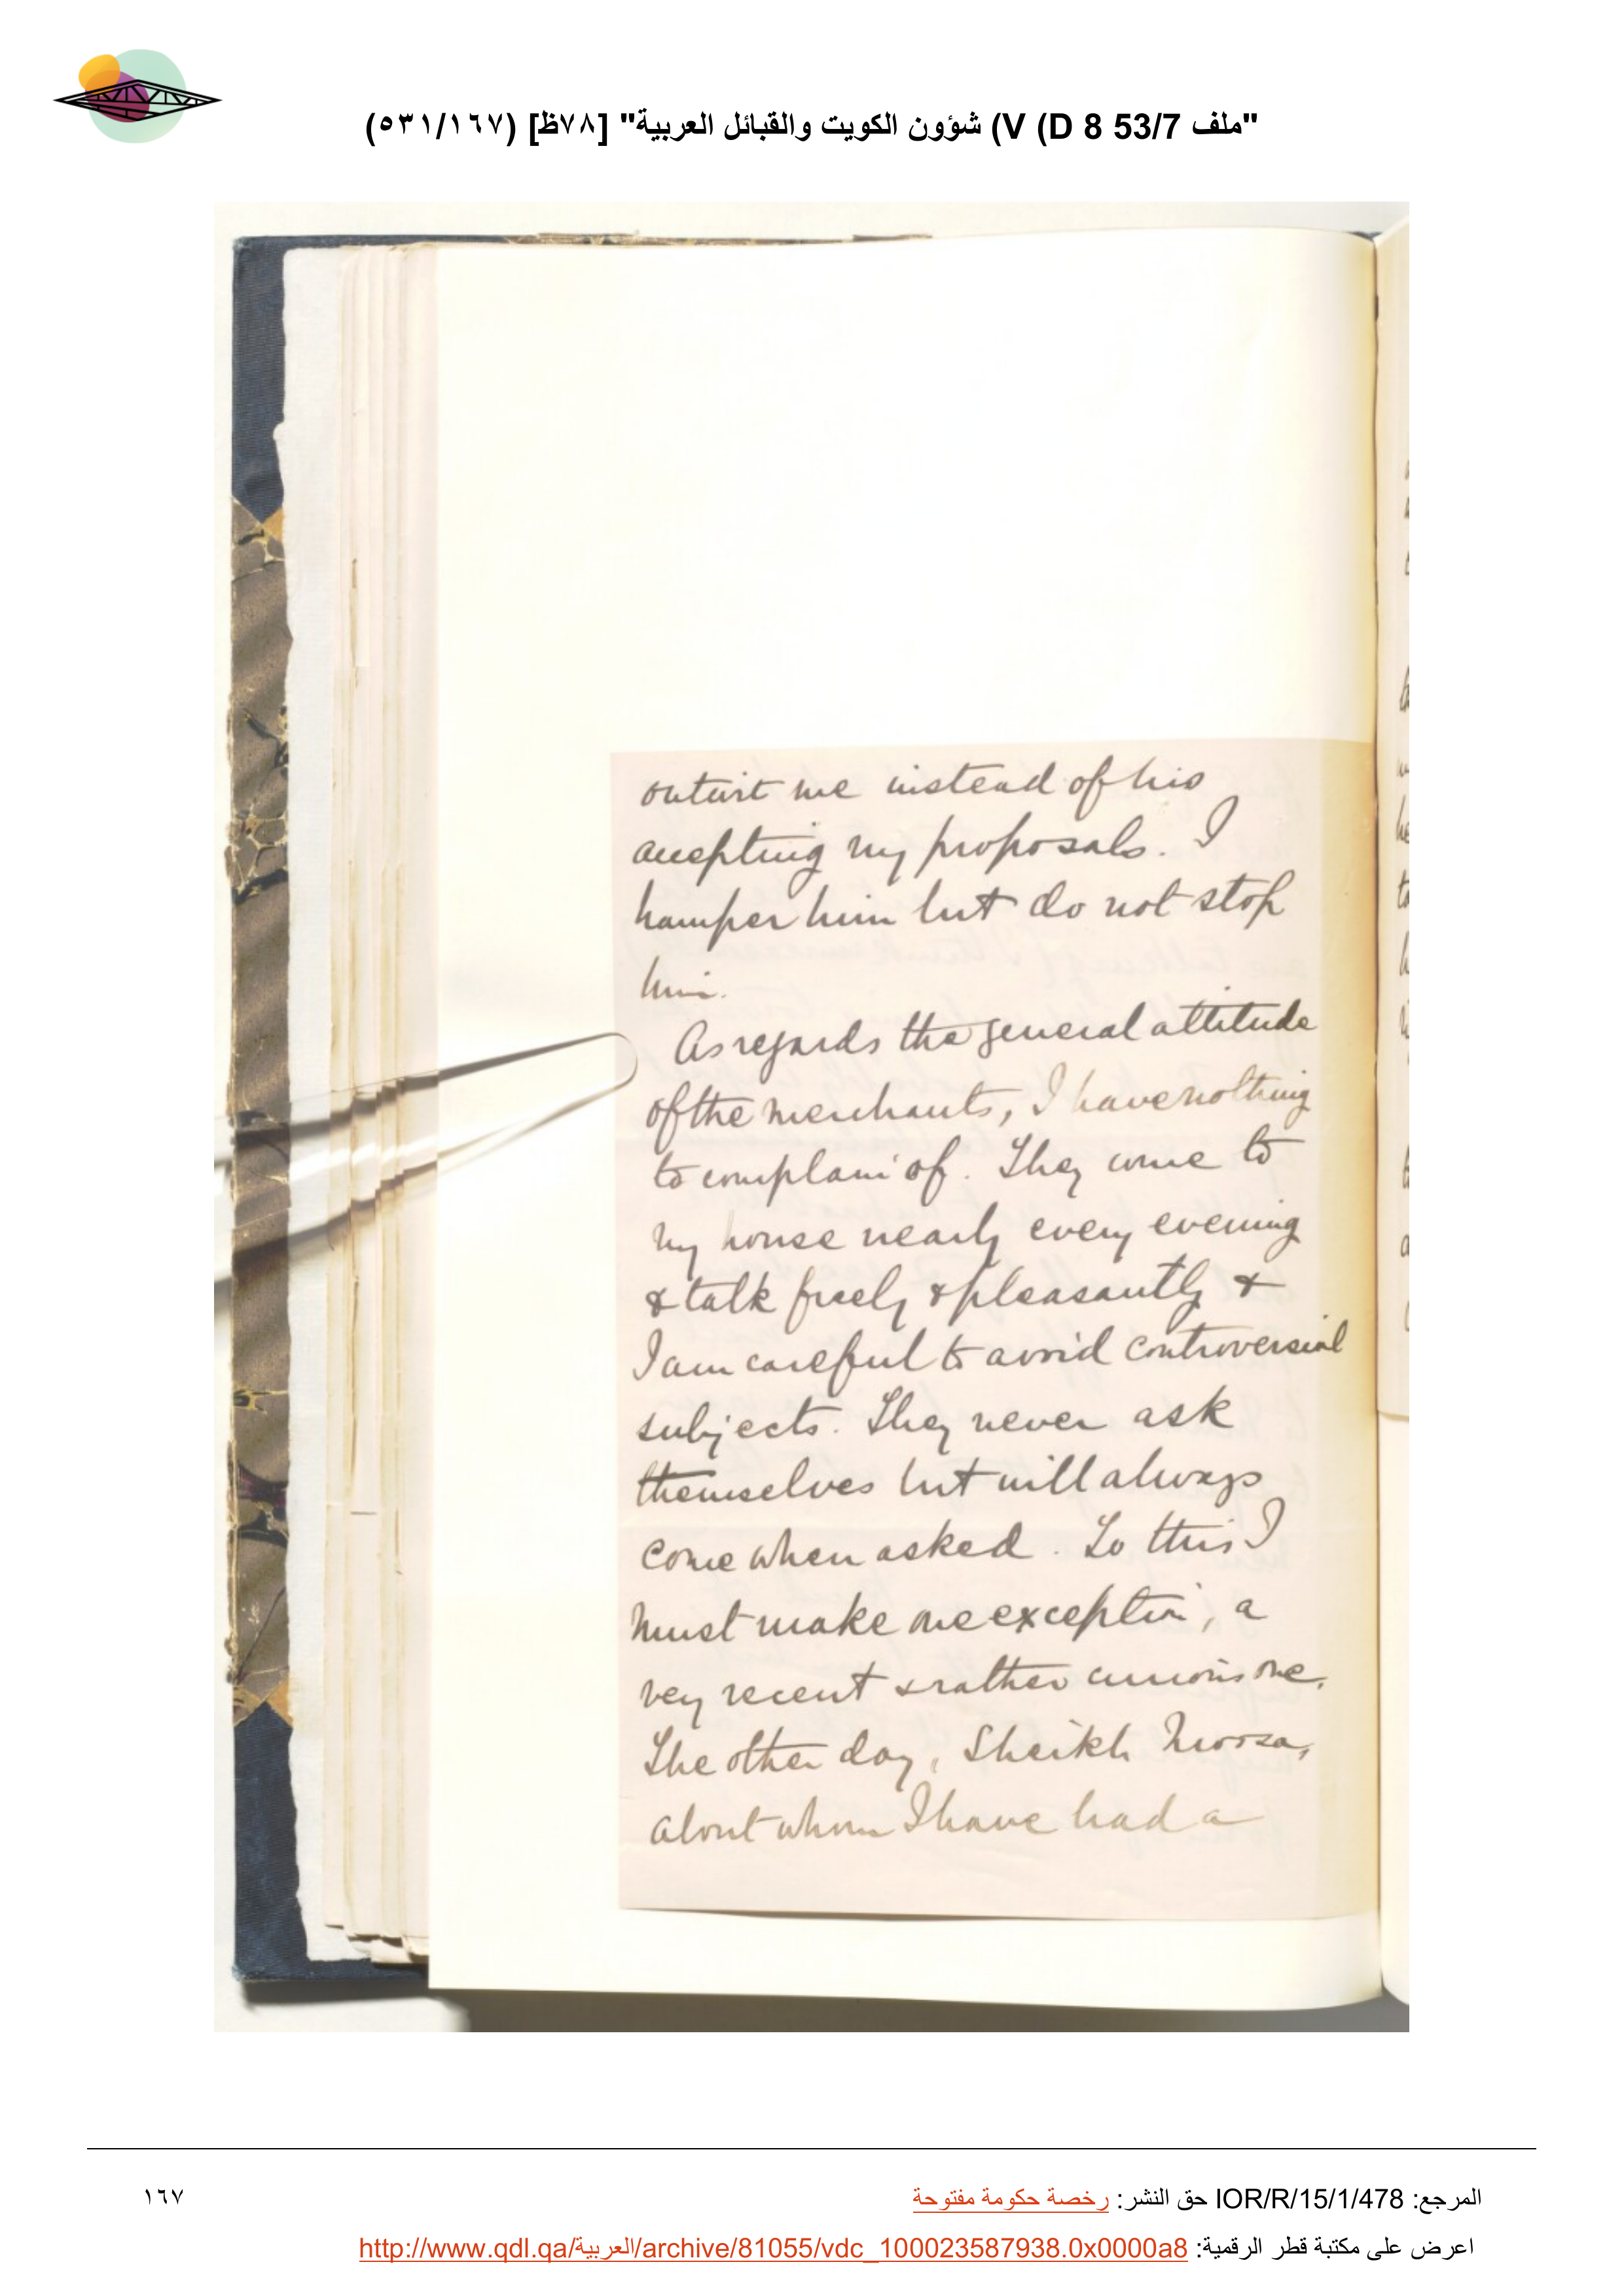 "ملف 53/7 V (D 8) شؤون الكويت والقبائل العربية" [٧٨ظ] (٥٣١/١٦٧)
outwit me instead of his
accepting my proposals. I
hamper him but do not stop
him.
As regards the general attitude
of the merchants, I have nothing
to complain of. They come to
my house nearly every evening
& talk freely & pleasantly &
I am careful to avoid controversial
subjects. They never ask
themselves but will always
come when asked. To this I
must make one exception, a
very recent & rather curious one.
The other day, Sheikh Moosa,
about whom I have had a
المرجع: IOR/R/15/1/478 حق النشر: رخصة حكومة مفتوحة
١٦٧
اعرض على مكتبة قطر الرقمية: http://www.qdl.qa/العربية/archive/81055/vdc_100023587938.0x0000a8